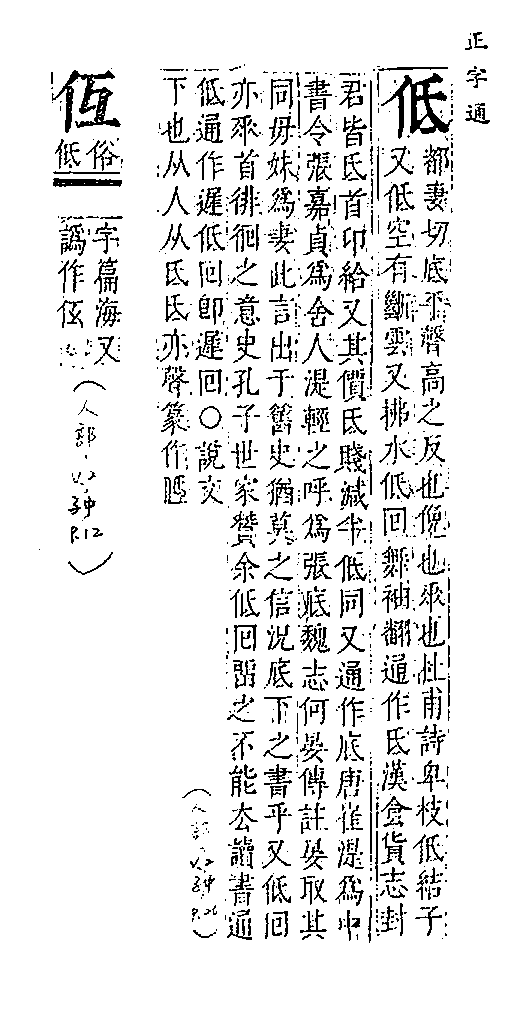 正字通
低
都妻切底平聲高之反也俛也垂也杜甫詩卑枝低結子
又低空有斷雲又拂水低回舞袖翻通作氐漢食貨志封
君皆氐首卬給又其價氐賤減半低同又通作底唐崔湜爲中
書令張嘉貞爲舍人湜輕之呼爲張底魏志何晏傳註晏取其
同毋妹爲妻此言出于舊史猶莫之信況底下之書乎又低回
亦垂首徘徊之意史孔子世家贊余低回畱之不能去讀書通
低通作遲低回卽遲回○說文
下也从人从氐氐亦聲篆作
(人部
子中
仾
俗低
字篇海又
譌作伭
(人部
子中
P.12)